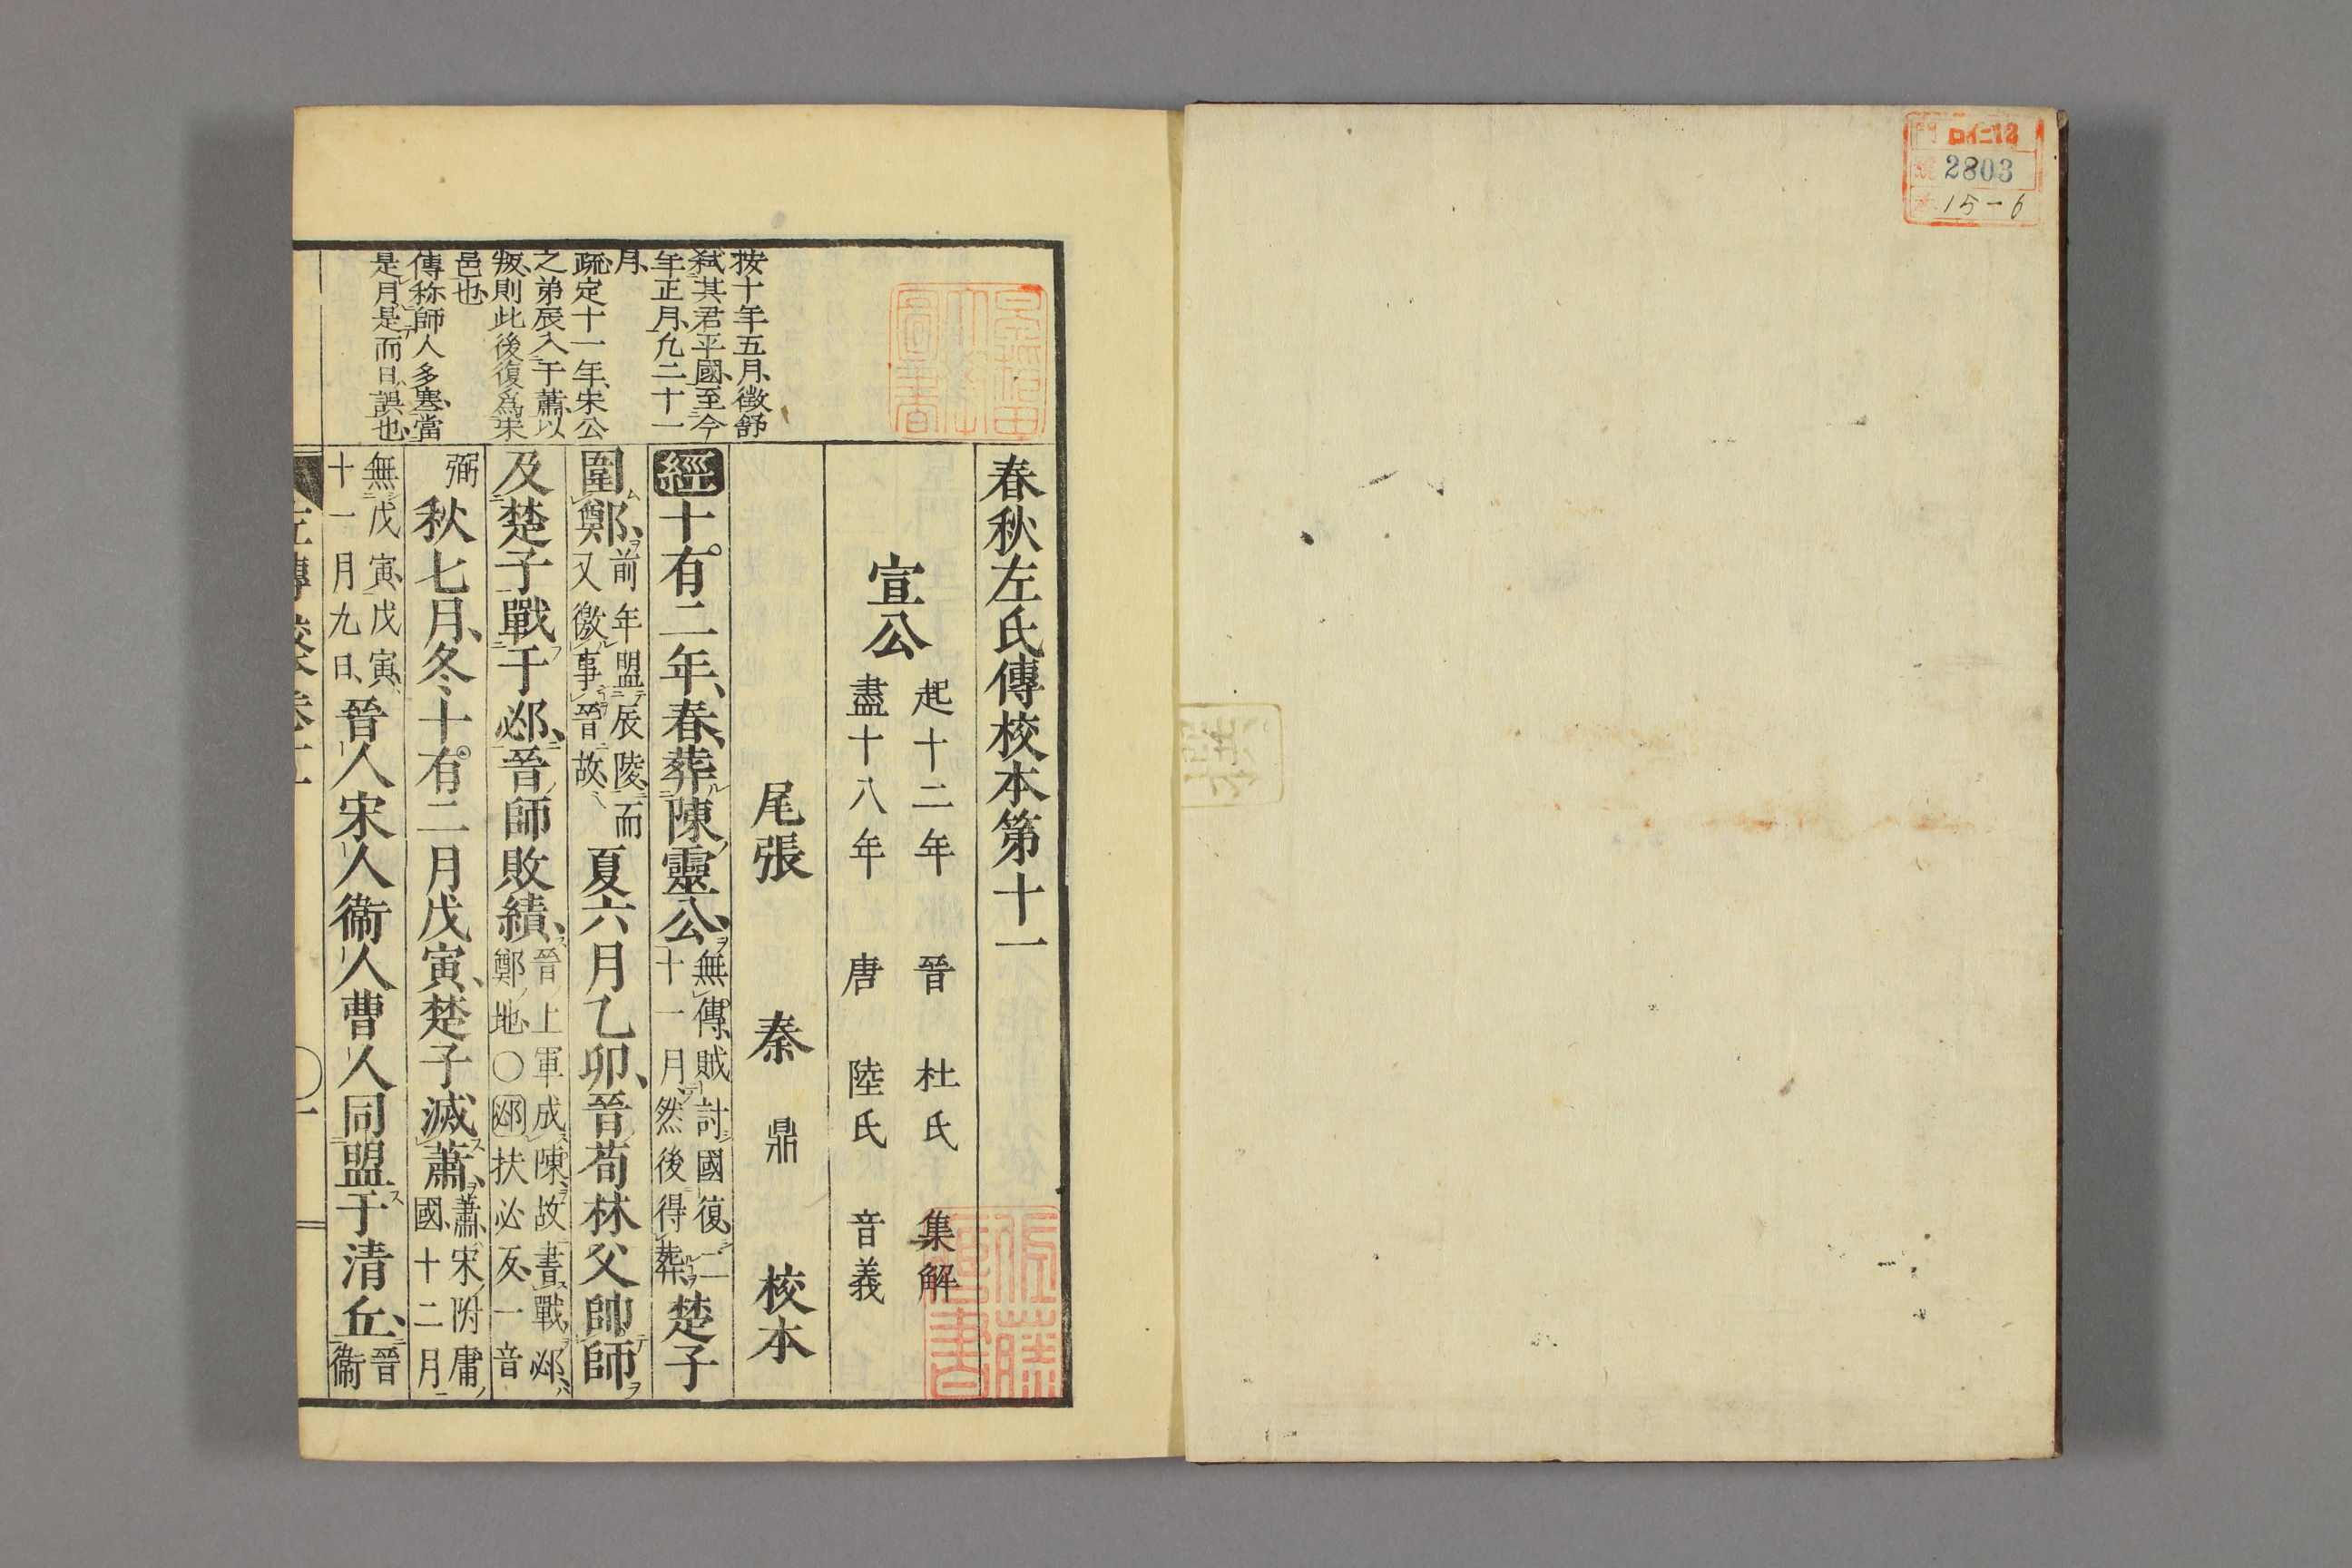 ロ仁12
2803
15-6
春秋左氏傳校本第十一
宣公
起十二年 晉 杜氏 集解
盡十八年 唐 陸氏 音義
尾張 秦 鼎 校本
經十有二年、春、葬陳靈公、
無傳、賊討國復、二
十一月、然後得葬、
楚子
圍鄭、
前年盟辰陵、而
又徼事晉故、
夏六月乙卯、晉荀林父帥師
及楚子戰于邲、晉師敗績、
晉上軍成陳、故書戰、邲、
鄭地、〇邲扶必反、一音
弼
秋七月、冬、十有二月戊寅、楚子滅蕭、
蕭、宋附庸
國、十二月
無戊寅、戊寅、
十一月九日、
晉人宋人衞人曹人同盟于清丘、
晉
衞
按十年五月、徵舒
弑其君平國、至今
年正月、凡二十一
月、
疏、定十一年、宋公
之弟辰入于蕭、以
叛、則此後復爲宋
邑也、
傳称師人多寒、當
是月、是而日、誤也、
左傳校本卷十一
〇一
佐藤
圖書